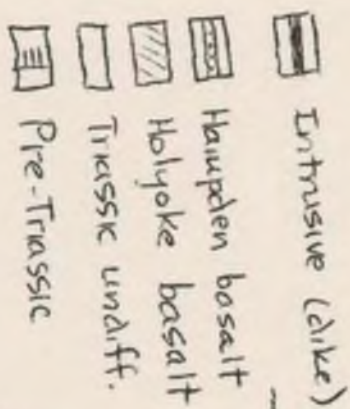 Intrusive (dike)
Hampden basalt
Holyoke basalt
Triassic undiff.
Pre-Triassic